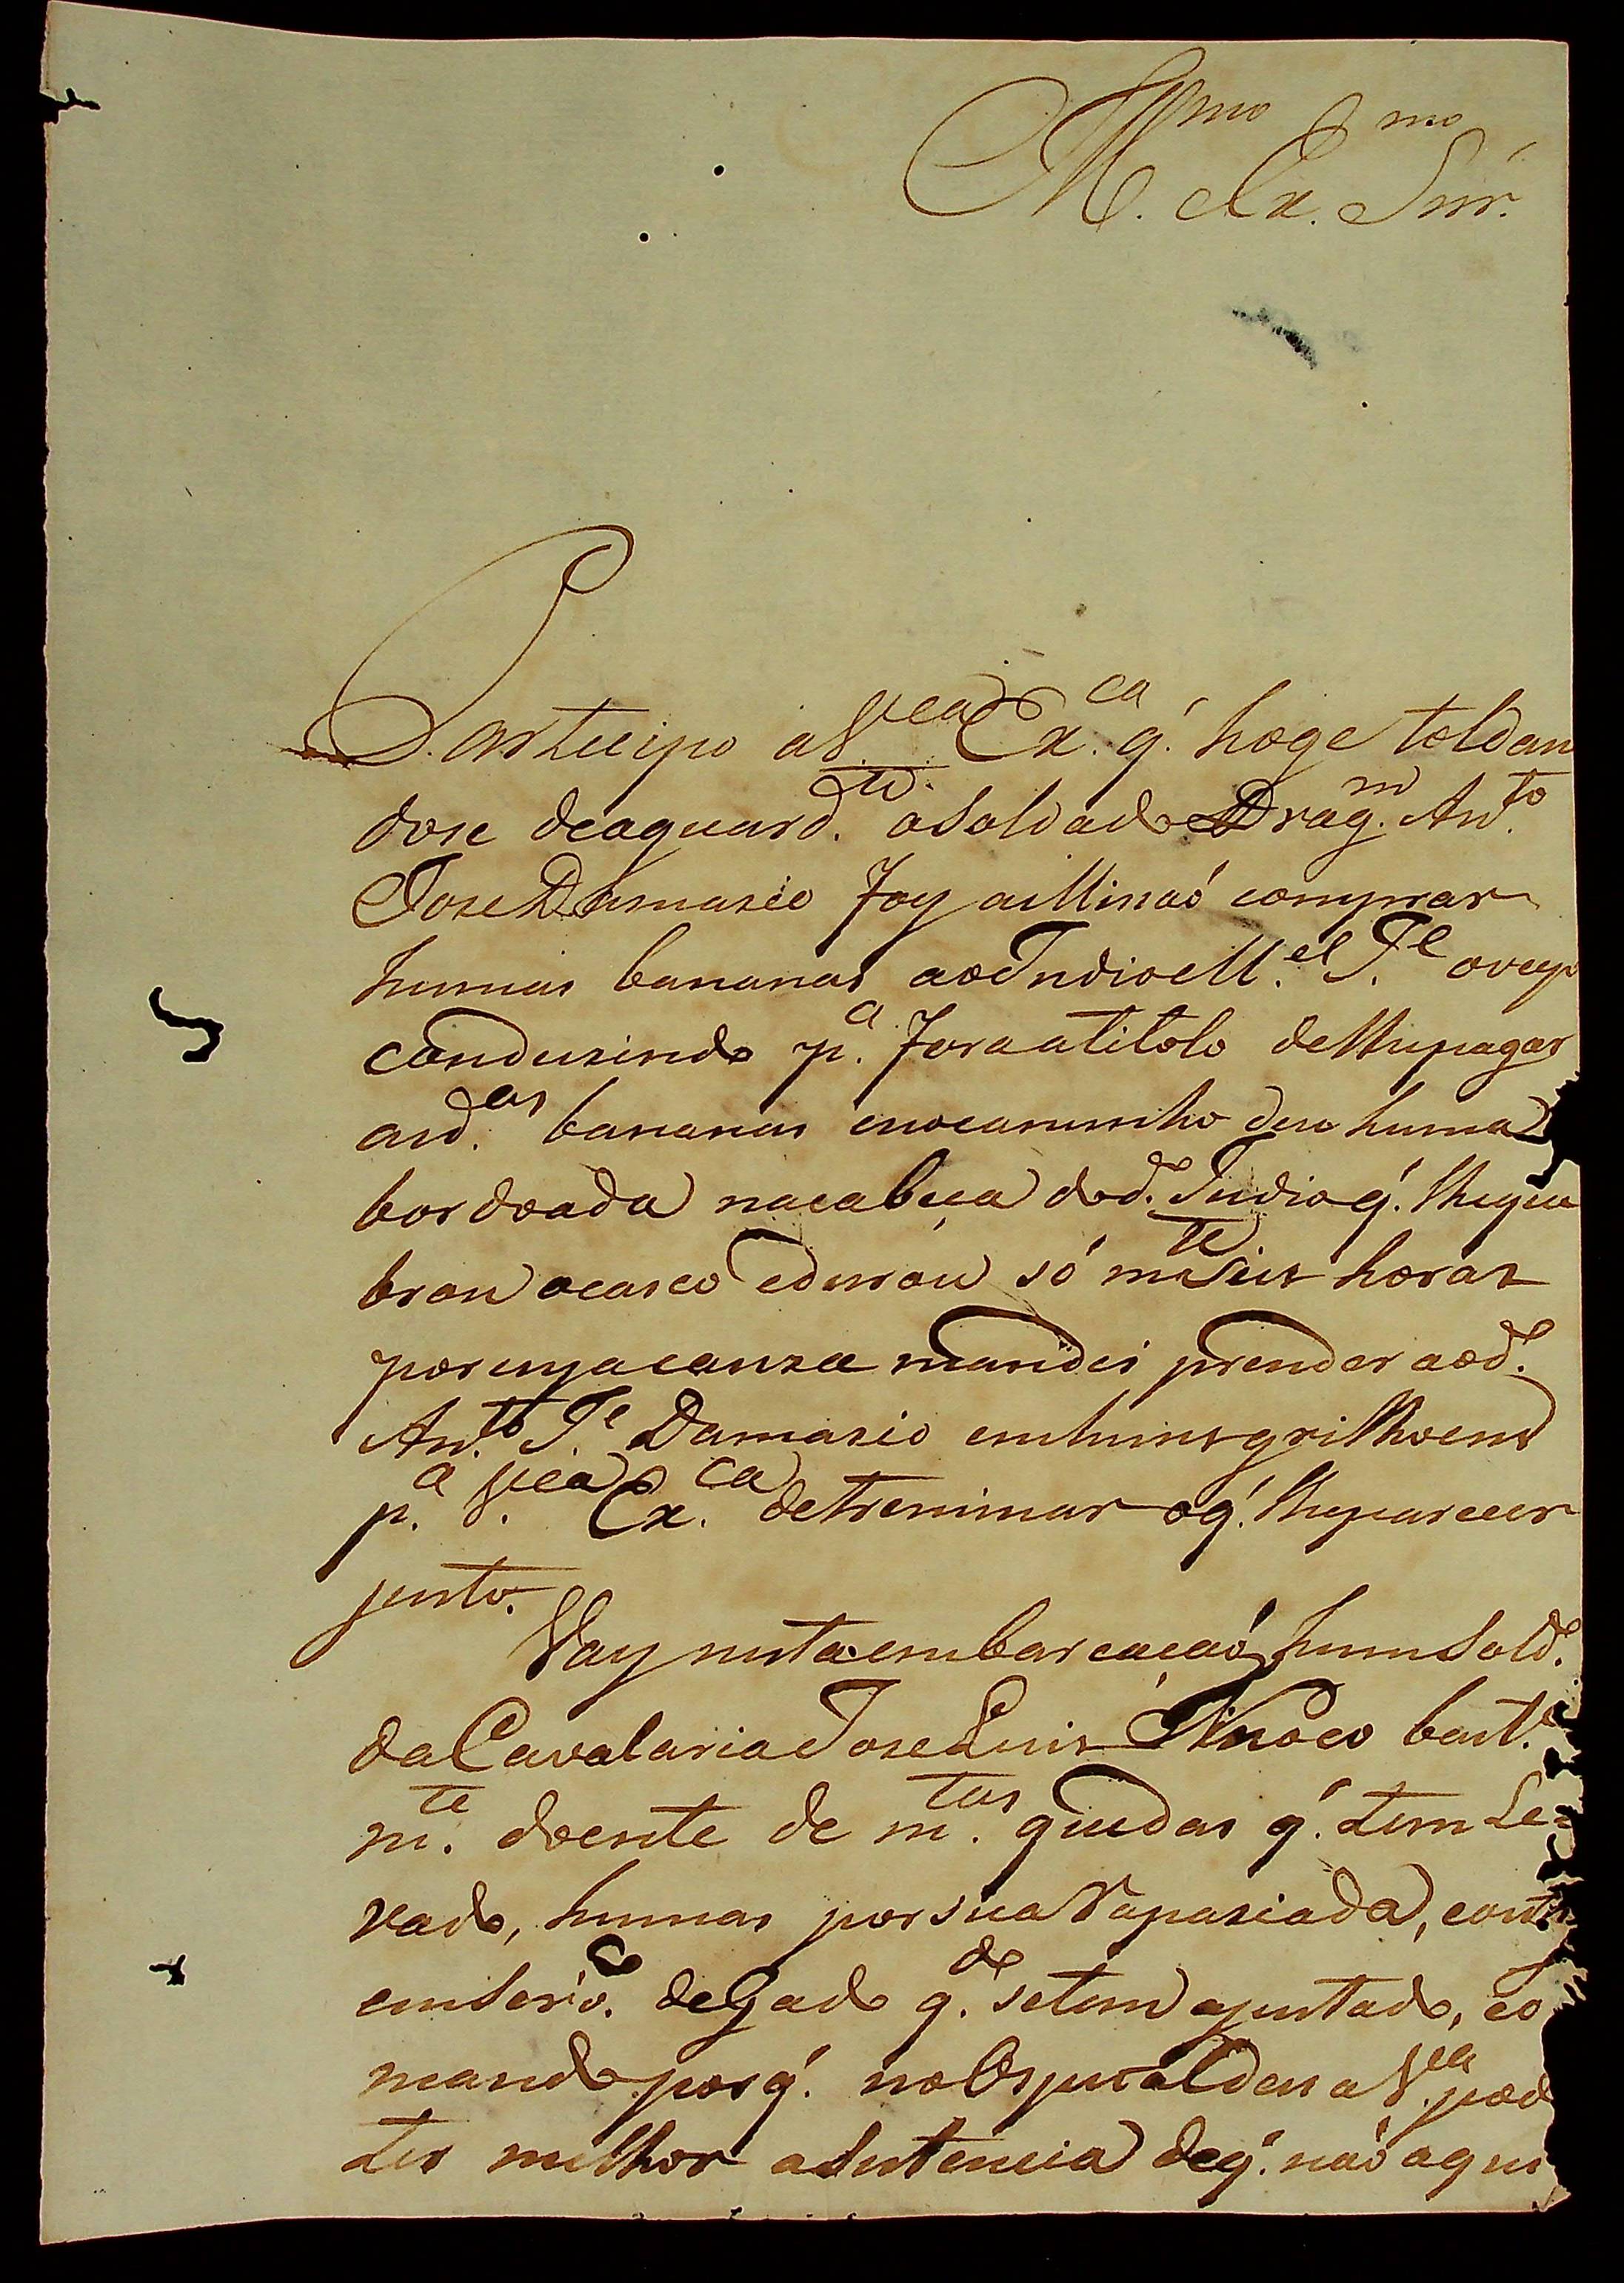 Ill.mo Ex.mo Snr.
Partecipo a V.ca Ex.ca q̃. hoge toldan
dose deaguard.te oSoldado Drag.m Ant.to
Jose Damazio foy aMinaó comprar
humas bananas aoIndio M.el J.e
condusindo p.a foraatitolo delhepagar
asd.as bananas enocaminho deu huma
bordoada nacabeça dod.o Indio q̃. lheque
brou ocasco edurou só m.te Seis horas
porcujacauza mandei prender aod.o
Ant.to J.e Damazio emhuns grilhoens
p.a V.ca Ex.ca detreminar oq̃. lheparecer
justo.
Vay nestaembarcaçaó hum Sold.o
daCavalaria Jose Luis Tinoco bast.e
m.te doente de m.tas quedas q̃. tem Le=
vado, humas por sua Rapaziada,
emServ.ço deGado q.do setem ajustado, eo
mando porq̃. noOspital desa V.ca pod
ter milhor aSistencia deq̃. naó aqui